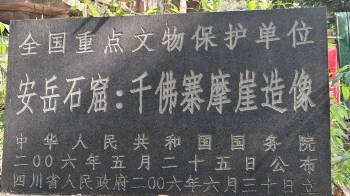 全国重点文物保护单位
安岳石窟：千佛寨摩崖造像
中华人民共和国国务院
二00六年五月二十五日公布
四川省人民政府二00六年六月三十日立